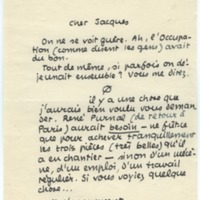 cher Jacques
On ne se voit guère. Ah, l'Occupa-
tion (comme disent les gens) avait
du bon.
Tout de même, si parfois on dé-
jeunait ensemble ? Vous me direz.
Ø
il y a une chose que
j'aurais bien voulu vous deman-
der. René Purnal (de retour à
Paris) aurait besoin — ne fût-ce
que pour achever tranquillement
les trois pièces (très belles) qu'il
a en chantier — sinon d'un mécè-
ne, d'un emploi, d'un travail
régulier. Si vous voyiez quelque
chose...